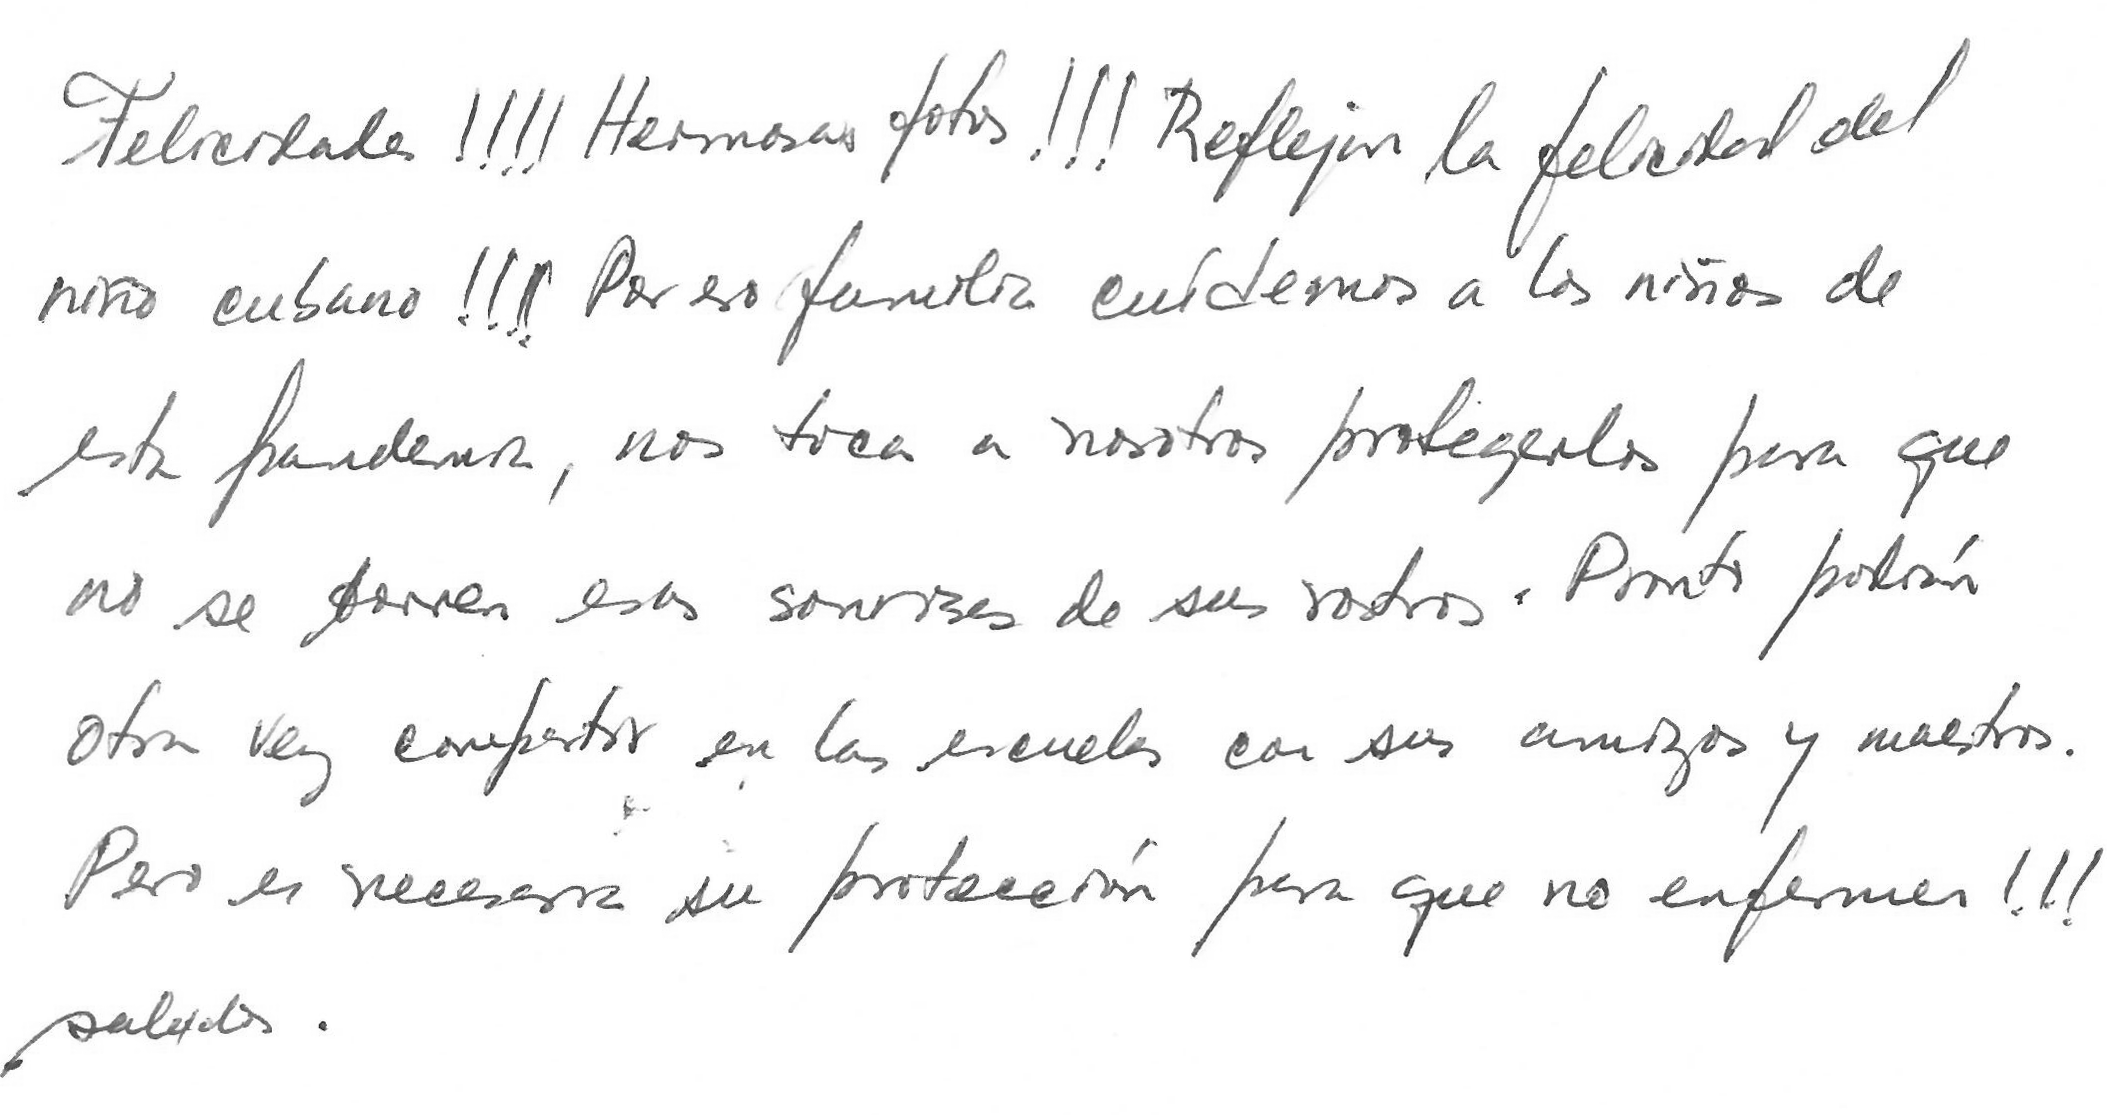 Felicidades !!!! Hermosas fotos !!! Reflejan la felicidad del
niño cubano !!!! Por eso familia cuídemos a los niños de
esta pandemia, nos toca a nosotros protegerlos para que
no se borren esas sonrisas de sus rostros. Pronto podrán
otra vez compartir en las escuelas con sus amigos y maestros.
Pero es necesaria su protección para que no enfermen !!!
saludos.